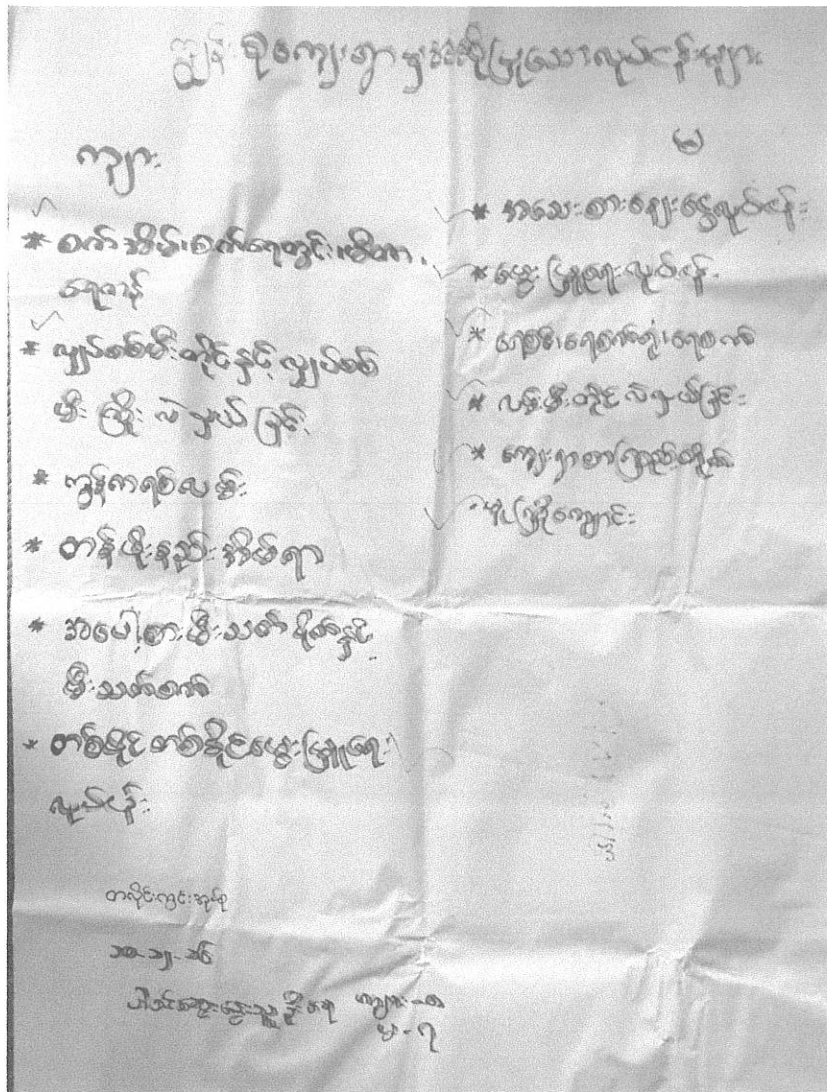 ကျွန်းစုကျေးရွာမှအဆိုပြုသောလုပ်ငန်းများ
ကျား
* စက်အိမ်၊ စက်ရေတွင်း၊ မီတာ၊
ရေကန်
* လျှပ်စစ်မီးတိုင်နှင့် လျှပ်စစ်
မီးကြိုး သွယ်ခြင်း
* ကွန်ကရစ်လမ်း
* တန်ဖိုးနည်းအိမ်ရာ
* အပေါ့စားမီးသတ်ပိုက်နှင့်
မီးသတ်စက်
* တစ်ပိုင်တစ်နိုင်မွေးမြူရေး
လုပ်ငန်း
မ
* အသေးစားချေးငွေလုပ်ငန်း
* မွေးမြူရေးလုပ်ငန်း
* ရေစင်၊ ရေစက်တွင်း၊ ရေစက်
* လမ်းမီးတိုင် သွယ်ခြင်း
* ကျေးရွာစာကြည့်တိုက်
* မူပြိုကျောင်း
တလိုင်းကွင်းအုပ်စု
ကျား - ၈
မ - ၇